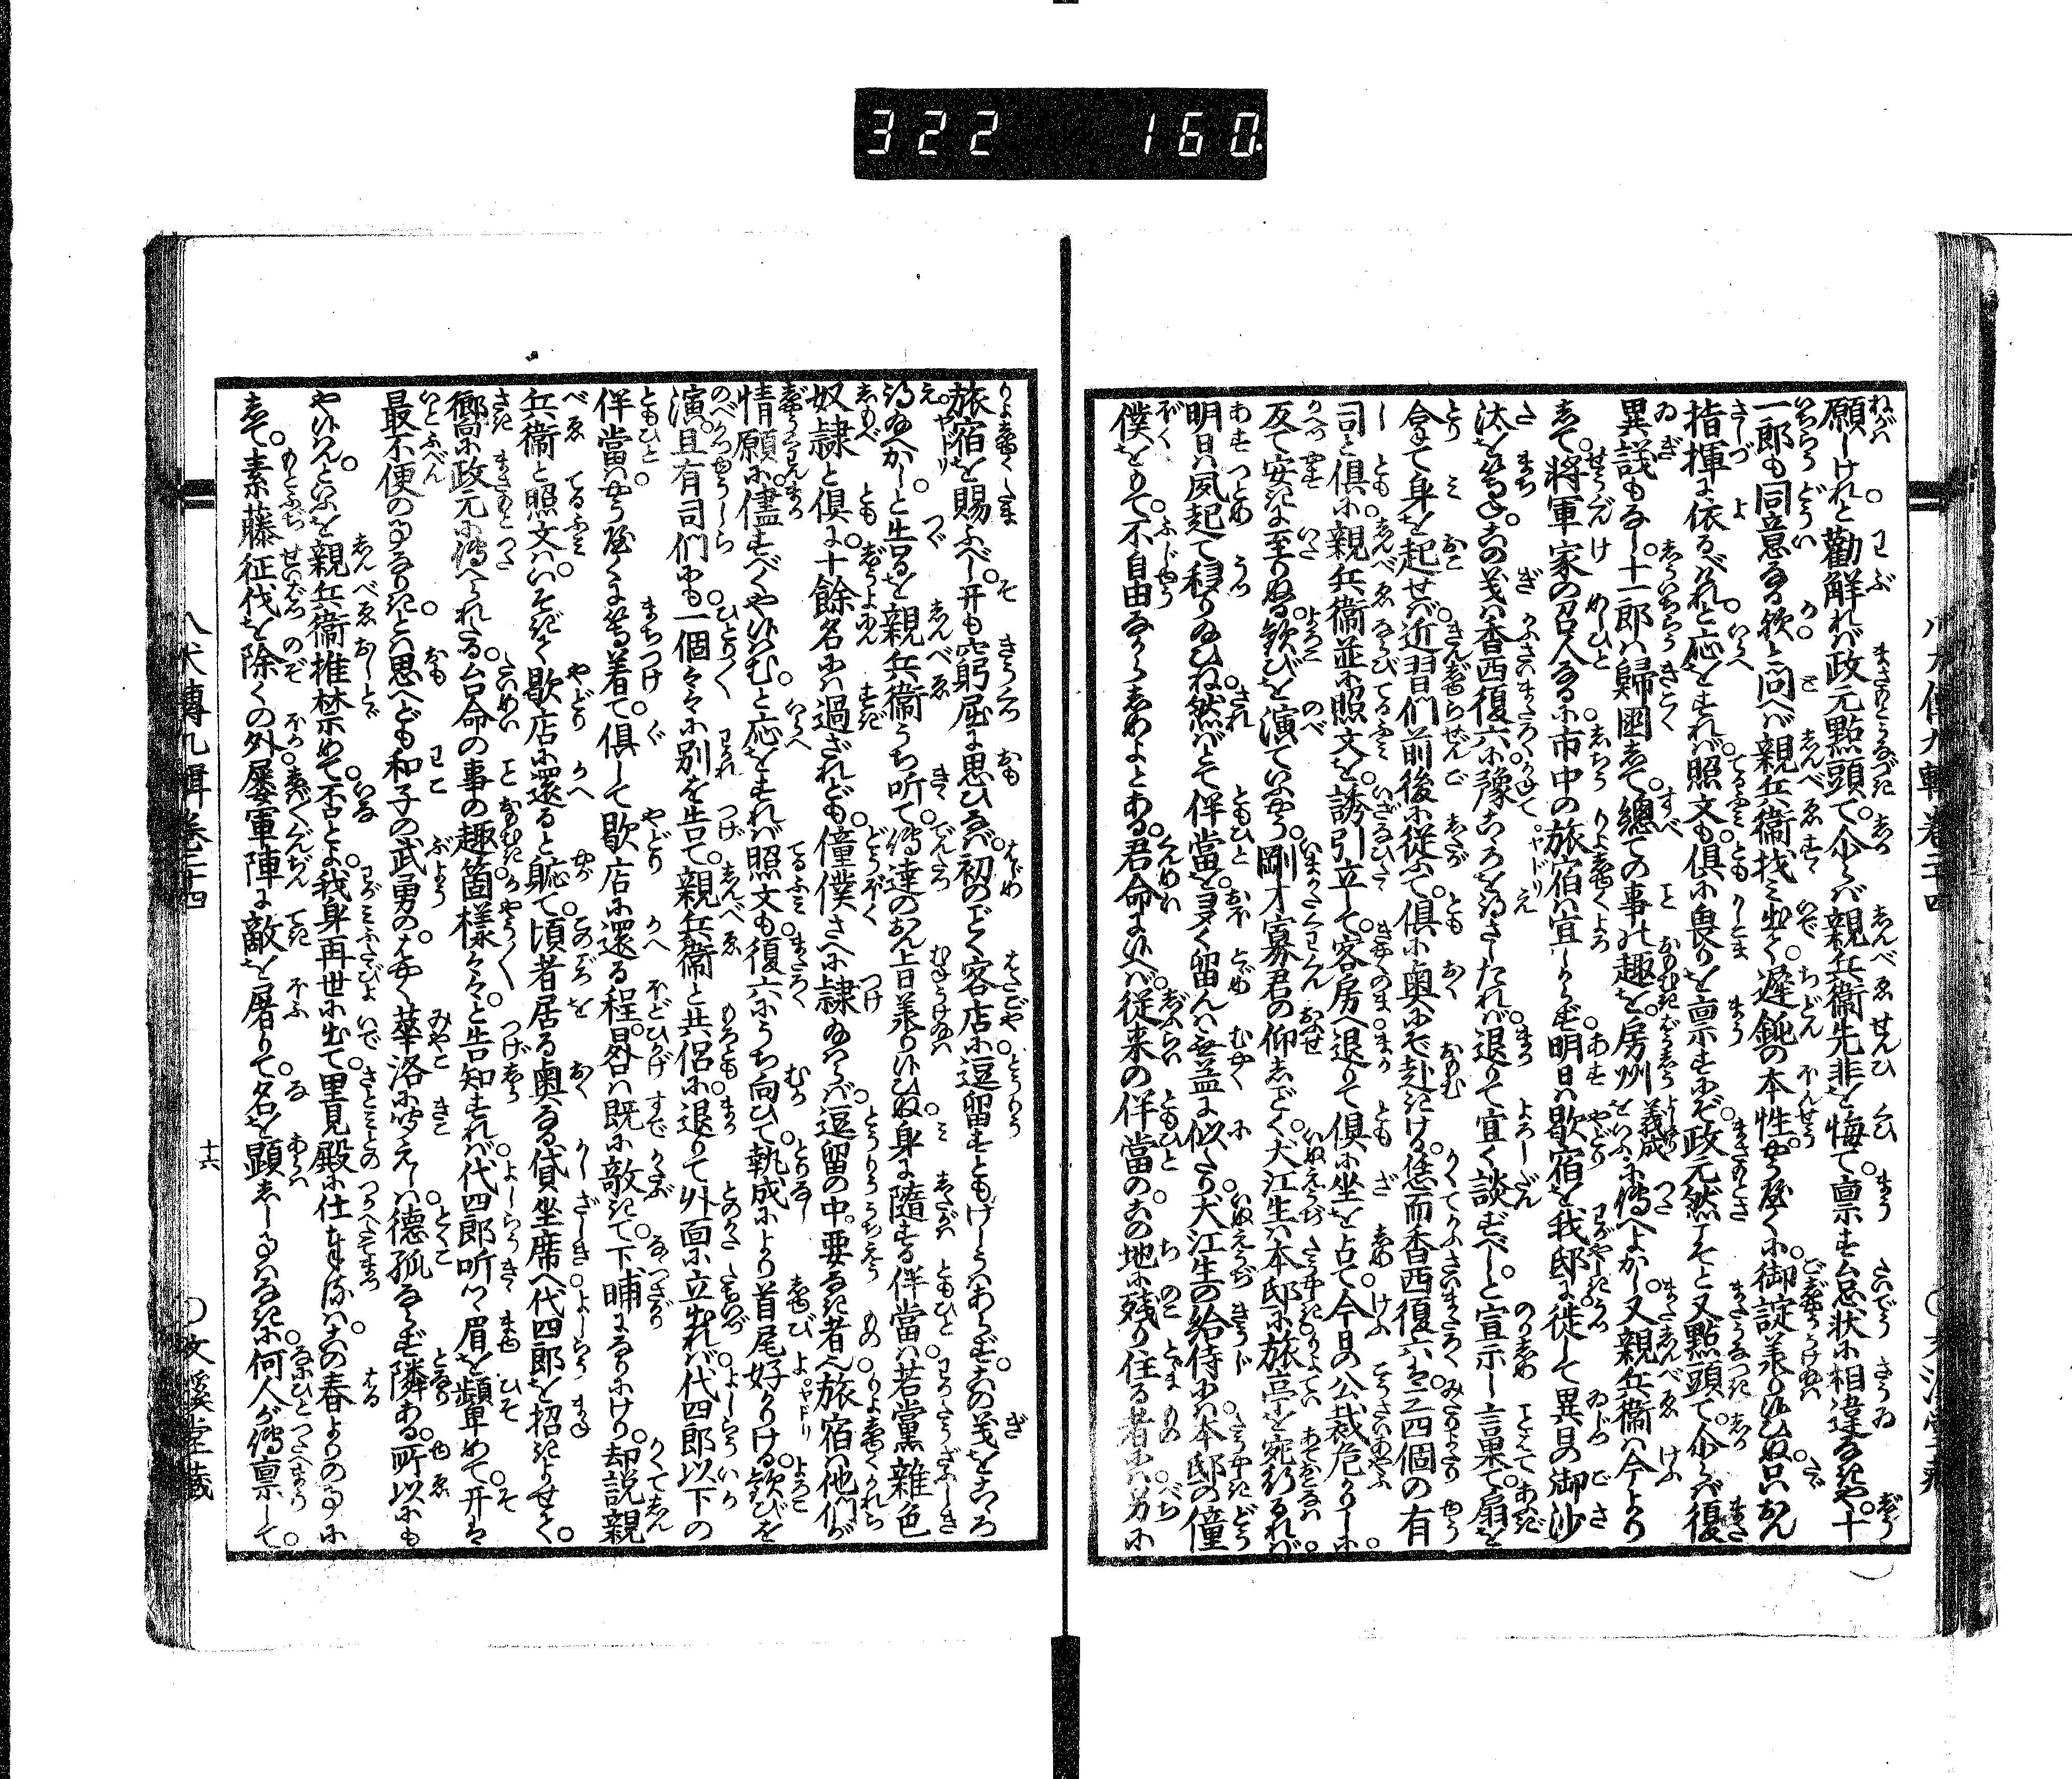 322 160.
願しけれと勸解れバ政元點頭て尒らバ親兵衞先非を悔て稟す怠状に相違なきや十
一郎も同意なる欤と問ヘバ親兵衞找ミ出て遲鈍の本性やうやくに御諚承り候ひぬ只おん
指揮に依るべけれと応をすれバ照文も倶に畏りを稟すにぞ政元然こそと又點頭て尒らバ復
異議もなし十一郎ハ歸囯して總ての事の趣を房州義成をいふに傳へよかし又親兵衞ハ今より
して將軍家の召人なるに市中の旅宿ハ宜しからず明日ハ歇宿を我邸に徙して異日の御沙
汰を等ね這の義ハ香西復六に豫こゝろを得さしたれバ退りて宜く談ずべしと宣示し言果て扇を
合して身を起せバ近習們前後に従ふて倶に奥にぞ赴きける恁而香西復六ハ三四個の有
司と倶に親兵衞並に照文を誘引立して客房へ退りて倶に坐を占て今日の公裁危かりしに
反て安きに至りぬる歓びを演ていふやう剛才寡君の仰しごとく犬江生ハ本邸に旅亭を宛行るれバ
明日ハ夙起て移りゐひね然バとて伴當を多く留んハ無益に似たり犬江生の給侍にハ本邸の僮
僕をもて不自由なからしめよとある君命に候ヘバ従来の伴當の這の地に残り住る者にハ別に
旅宿を賜ふべし开も窮屈に思ひなバ初のごとく客店に逗留すともけしうハあらず這の義をこゝろ
得ゐへかしと告るを親兵衞うち听て傳達のおん旨承り候ひぬ身に隨する伴當ハ若黨雜色
奴隷と倶に十餘名にハ過ざれども僮僕さへに隷ゐハゞ逗留の中要なき者也旅宿ハ他們が
情願に儘すべくや候はむと応をすれバ照文も復六にうち向ひて執成により首尾好かりける歓びを
演且有司們にも一個々々に別を告て親兵衞と共侶に退りて外面に立出れバ代四郎以下の
伴當ハやうやくに等着て倶して歇店に還る程晷ハ既に敧きて下晡になりにけり却説親
兵衞と照文ハいそぎて歇店に還ると軈て頃者居る奥なる貸坐席へ代四郎を招きよせて
嚮に政元に傳へられたる台命の事の趣箇様々々と告知すれバ代四郎听つゝ眉を顰めて开ハ
最不便の事なりきとハ思へども和子の武勇のはやく華洛に聞えしハ德孤ならず隣ある所以にも
や候ハんといふを親兵衞推禁めて否とよ我身再世に出て里見殿に仕まつりしハ這の春よりの事に
して素藤征伐を除くの外屡軍陣に敵を屠りて名を顯しし事ハなきに何人が傳稟して
八犬傳九輯卷三十四
十六
○文溪堂藏